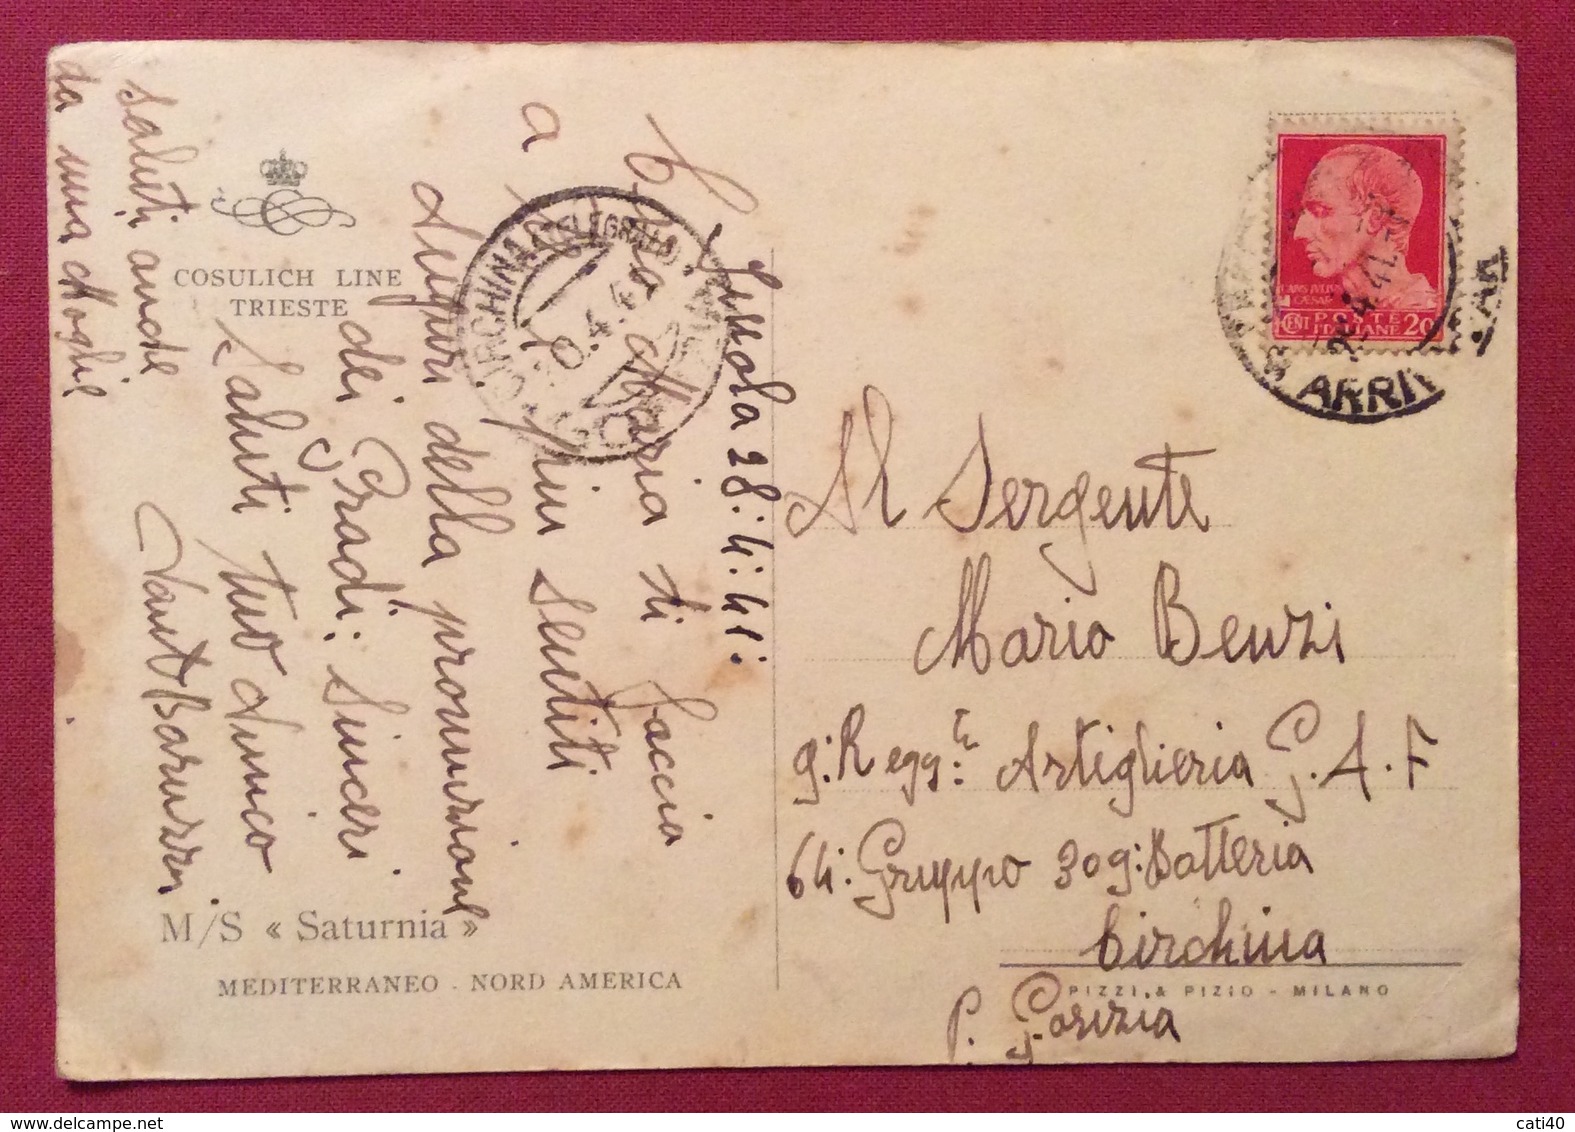 COSULICH LINE
TRIESTE
M/S « Saturnia »
MEDITERRANEO - NORD AMERICA
PIZZI & PIZIO - MILANO
28:4:41:
Maria ti faccia
a più sentiti
Auguri della promuzione
dei Gradi: Sinceri
Saluti tuo Amico
saluti anche
da mia Moglie
Al Sergente
Mario Benzi
9: Regg.te Artiglieria G.A.F
64: Gruppo 309: Batteria
Circhina
P. Gorizia
CIRCHINA
20.4.41
ARRI
CAIVS IVLIVS
CAESAR
CENT POSTE 20
ITALIANE
cati40